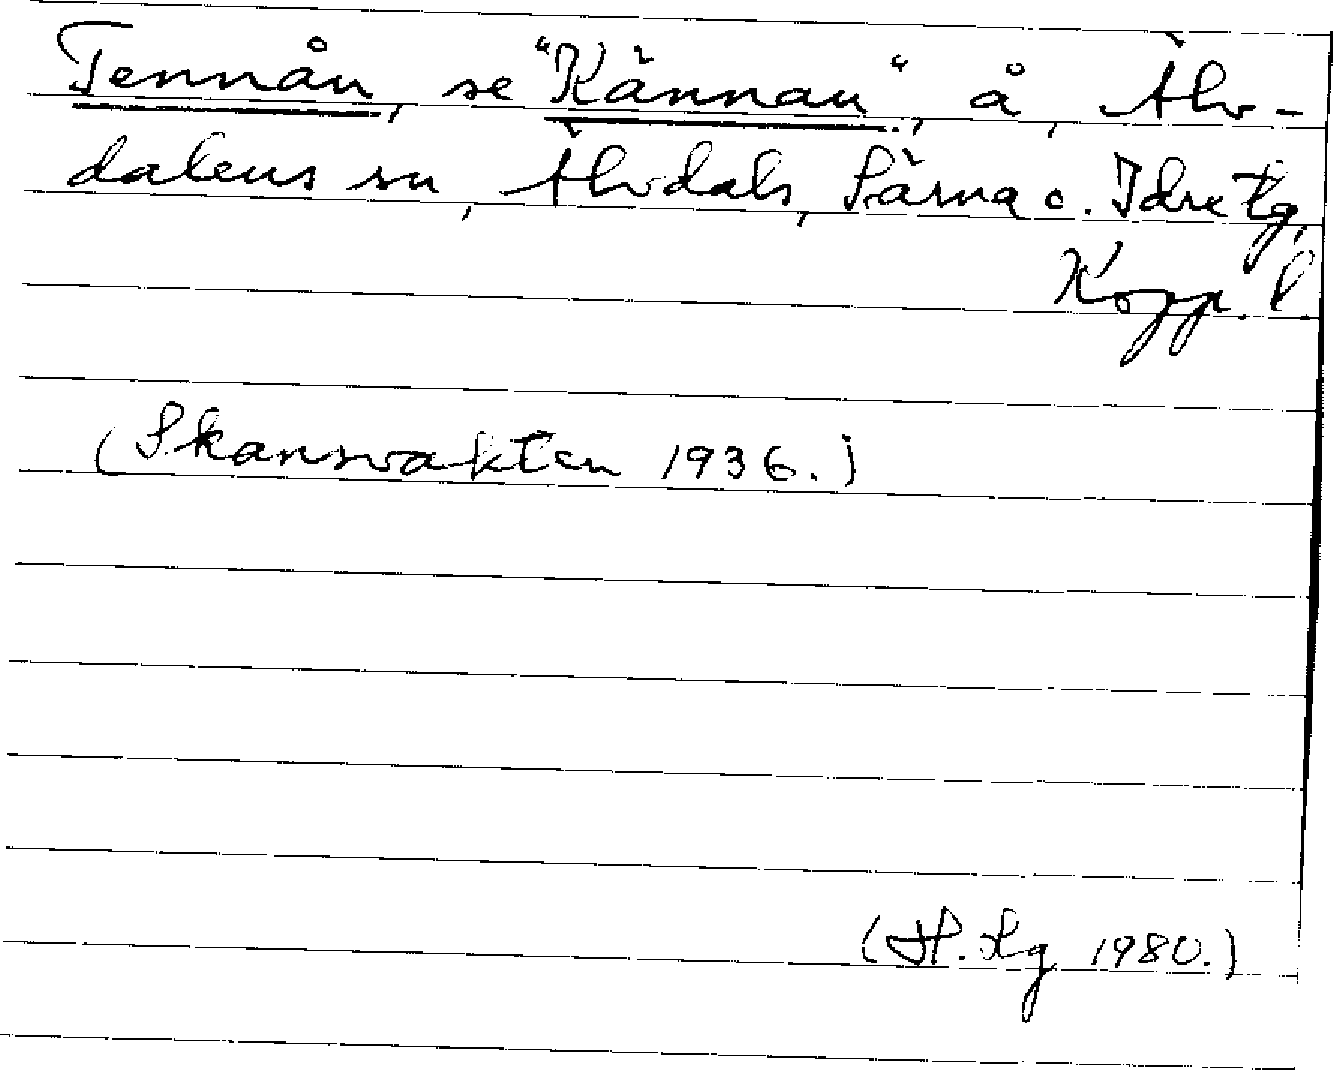 Tennån, se "Kännan", å, Älv-
dalens sn, Älvdals, Särna o. Idre tg,
Kopp. l.
(Skansvakten 1936.)
(H. Lg 1980.)